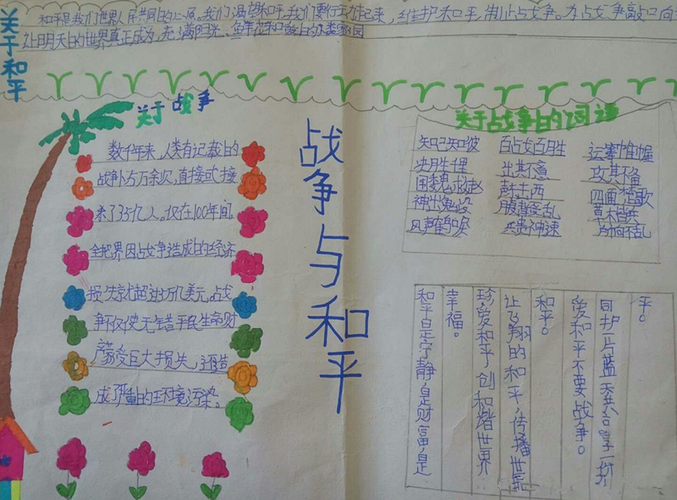 关于和平
和平是我们世界人民共同的心愿,我们渴望和平,我们要行动起来,维护和平,制止战争。为战争敲响
让明天的世界真正成为充满阳光、鲜花和
关于战争
数千年来,人类有记载的
战争5万余次,直接或间接
杀了35亿人。仅在100年间,
全世界因战争造成的经济
损失就超过万亿美元。战
争不仅使无辜平民生命财
产蒙受巨大损失,还造
成严重的环境污染。
战争与和平
关于战争的词语
知己知彼 百战百胜 运筹帷幄
决胜千里 出其不意 攻其不备
围魏救赵 声东击西 四面楚歌
神出鬼没 腹背受乱 草木皆兵
风声鹤唳 兵贵神速 临危不乱
和平是宁静,是财富,是
幸福。
珍爱和平,创和谐世界
让飞翔的和平,传播世界
和平。
爱和平不要战争。
同护一片蓝天,共享一份
平。